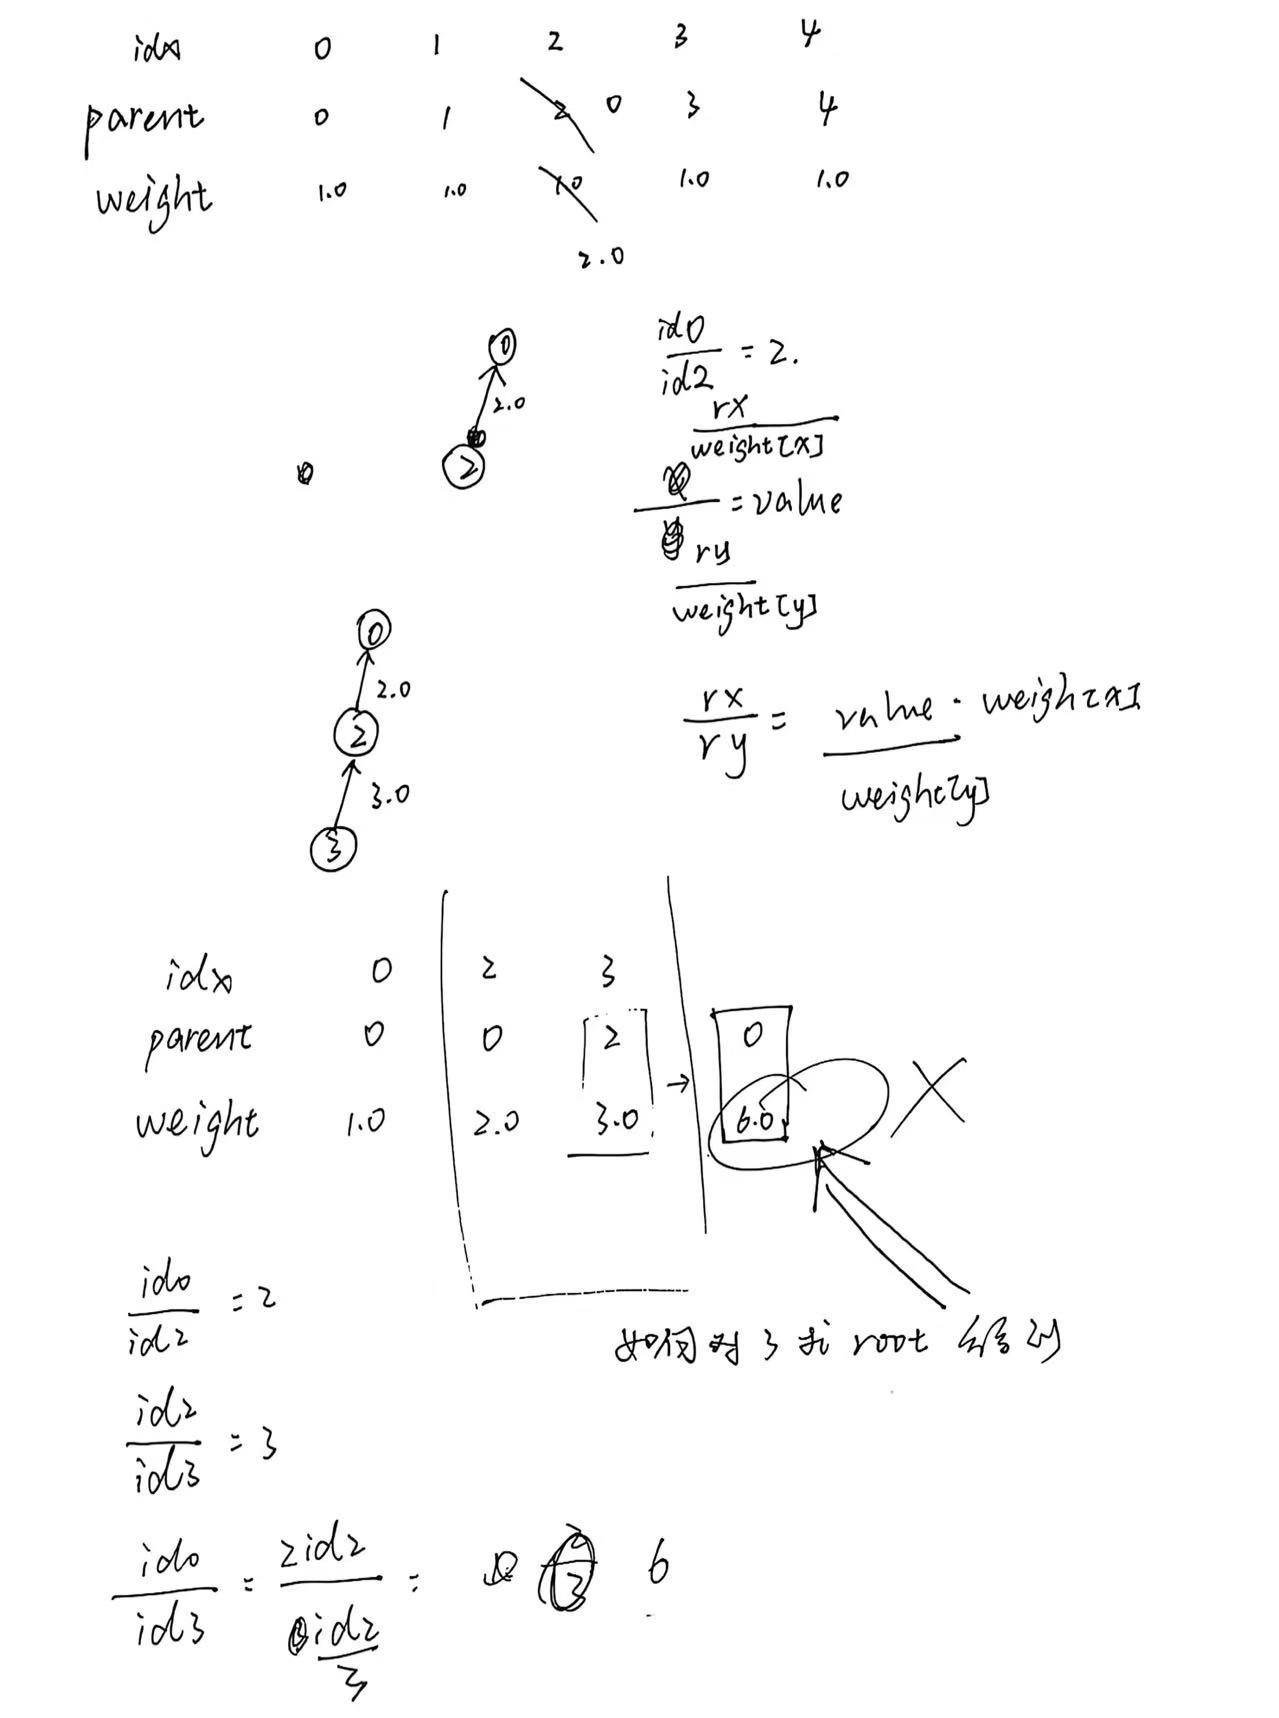 idx 0 1 2 3 4
parent 0 1 2 0 3 4
weight 1.0 1.0 1.0 1.0 1.0
2.0
0
2.0
2
id0
id2
= 2.
rx
weight[x]
= value
ry
weight[y]
0
2.0
2
3.0
3
rx
ry
=
value · weigh[x]
weight[y]
idx 0 2 3
parent 0 0 2 → 0
weight 1.0 2.0 3.0 6.0 X
如何对 3 和 root
id0
id2
= 2
id2
id3
= 3
id0
id3
=
2id2
id2
3
= 6